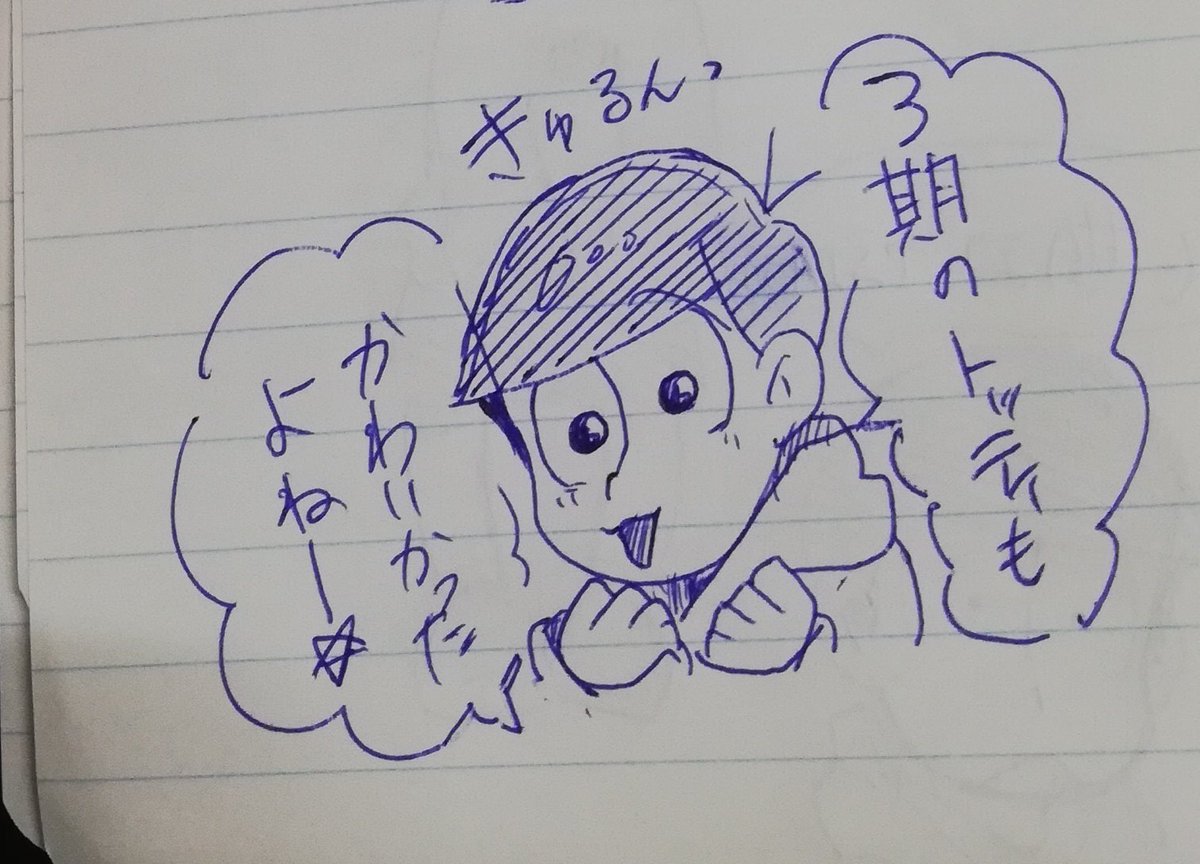 きゅるんっ
3期のトッティも
かわいかっだ
よねー☆